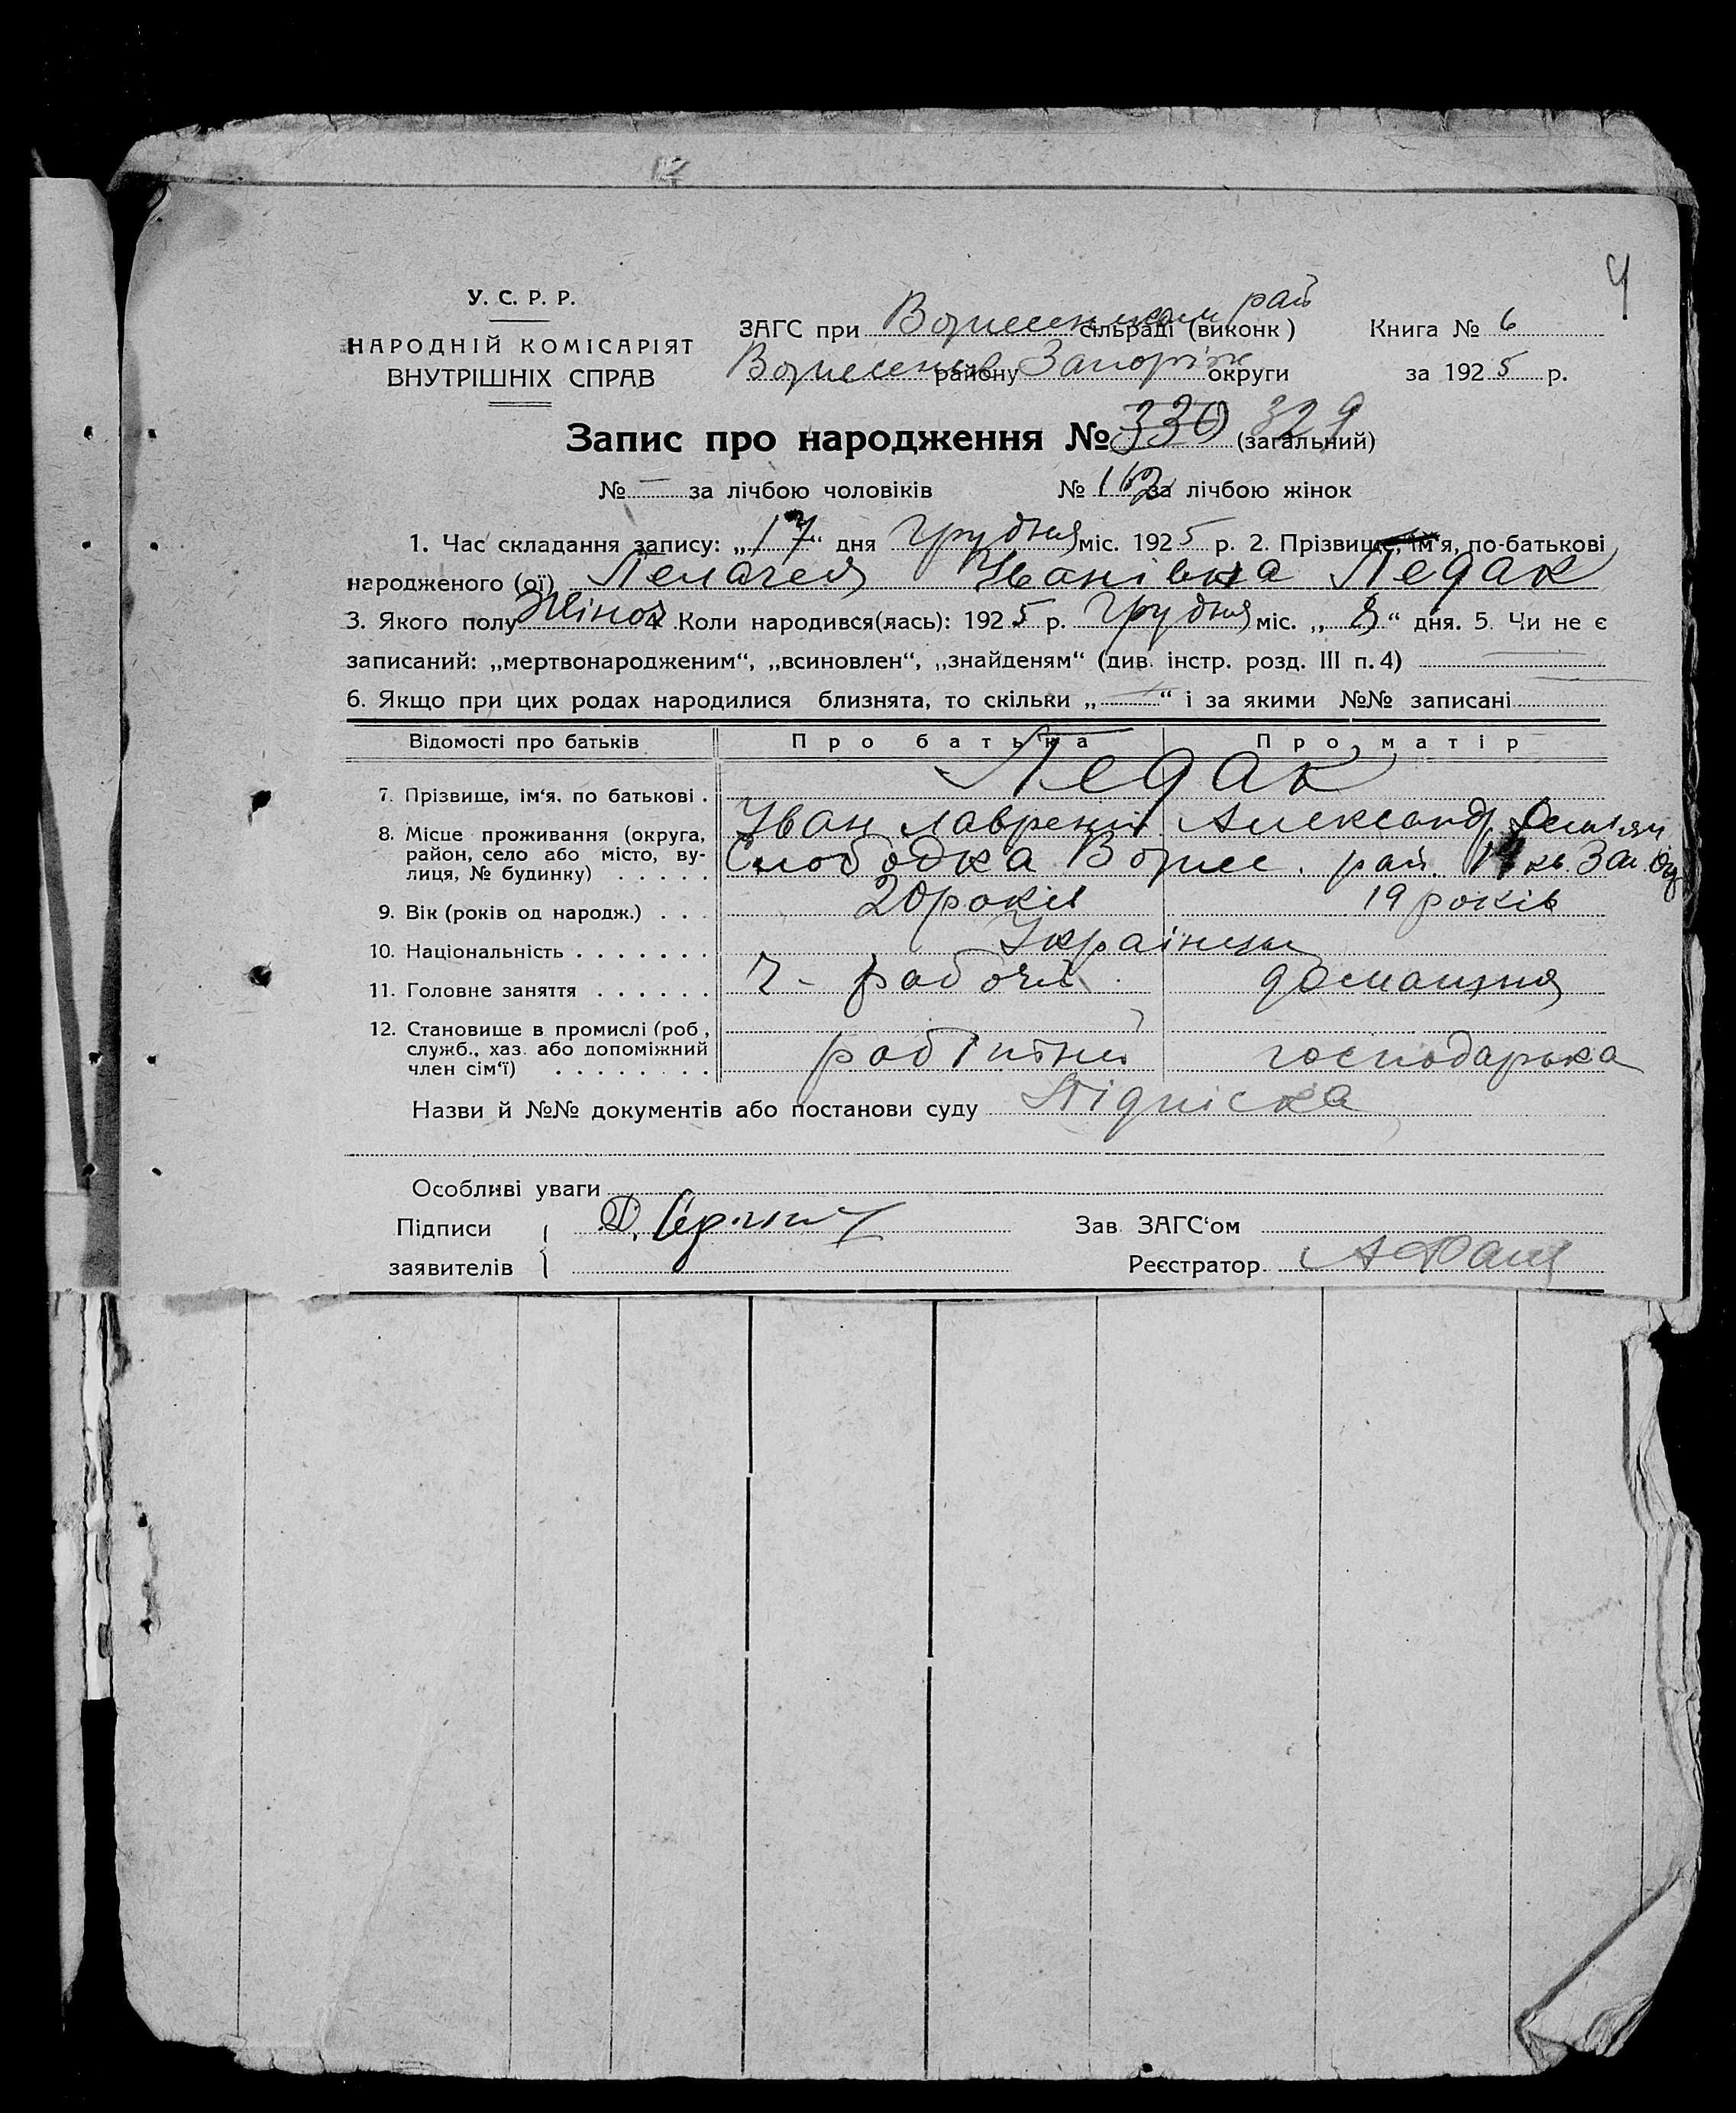 4
У. С. Р. Р.
НАРОДНІЙ КОМІСАРІЯТ
ВНУТРІШНІХ СПРАВ
ЗАГС при рай сільраді (виконк)
району Запоріж округи
Книга № 6
за 1925 р.
Запис про народження № 330 329 (загальний)
№ — за лічбою чоловіків № 162 за лічбою жінок
1. Час складання запису: „17“ дня Грудня міс. 1925 р. 2. Прізвище, ім'я, по-батькові
народженого (ої) Пелагея Іванівна Педак
3. Якого полу Жіноч 4 Коли народився(лась): 1925 р. Грудня міс. „8“ дня. 5. Чи не є
записаний: „мертвонародженим“, „всиновлен“, „знайденям“ (див. інстр. розд. III п. 4)
6. Якщо при цих родах народилися близнята, то скільки „—“ і за якими №№ записані
Відомості про батьків Про батька Про матір
7. Прізвище, ім'я. по батькові . Педак
Іван Лаврент. Александр
8. Місце проживання (округа, район, село або місто, вулиця, № будинку) . . . . . Слободка Вознес. рай. Зап. Ок
9. Вік (років од народж.) . . . 20 років 19 років
10. Національність . . . . . . . Українци
11. Головне заняття . . . . . . Ч- рабочій домашня
12. Становище в промислі (роб, служб., хаз. або допоміжний член сім'ї) . . . . . . . . робітник господарька
Назви й №№ документів або постанови суду Підпіска
Особливі уваги
Підписи Д. Зав ЗАГС'ом
заявителів Реєстратор.